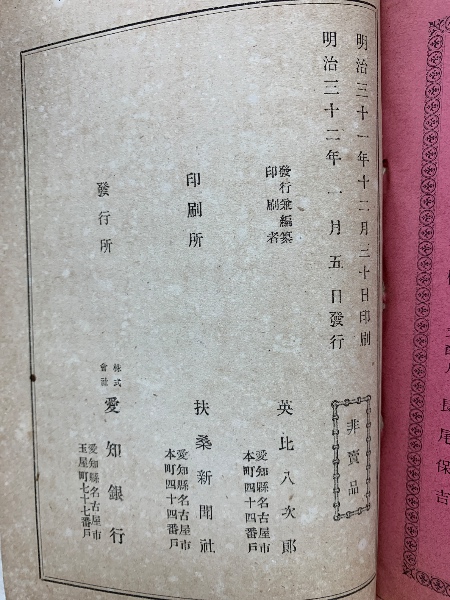 明治三十一年十二月三十日印刷
明治三十二年一月五日發行
非賣品
發行兼編纂
印刷者
愛知縣名古屋市
本町四十四番戶
英比八次郎
印刷所
愛知縣名古屋市
本町四十四番戶
扶桑新聞社
發行所
愛知縣名古屋市
玉屋町七十七番戶
株式
會社
愛知銀行
長尾保吉